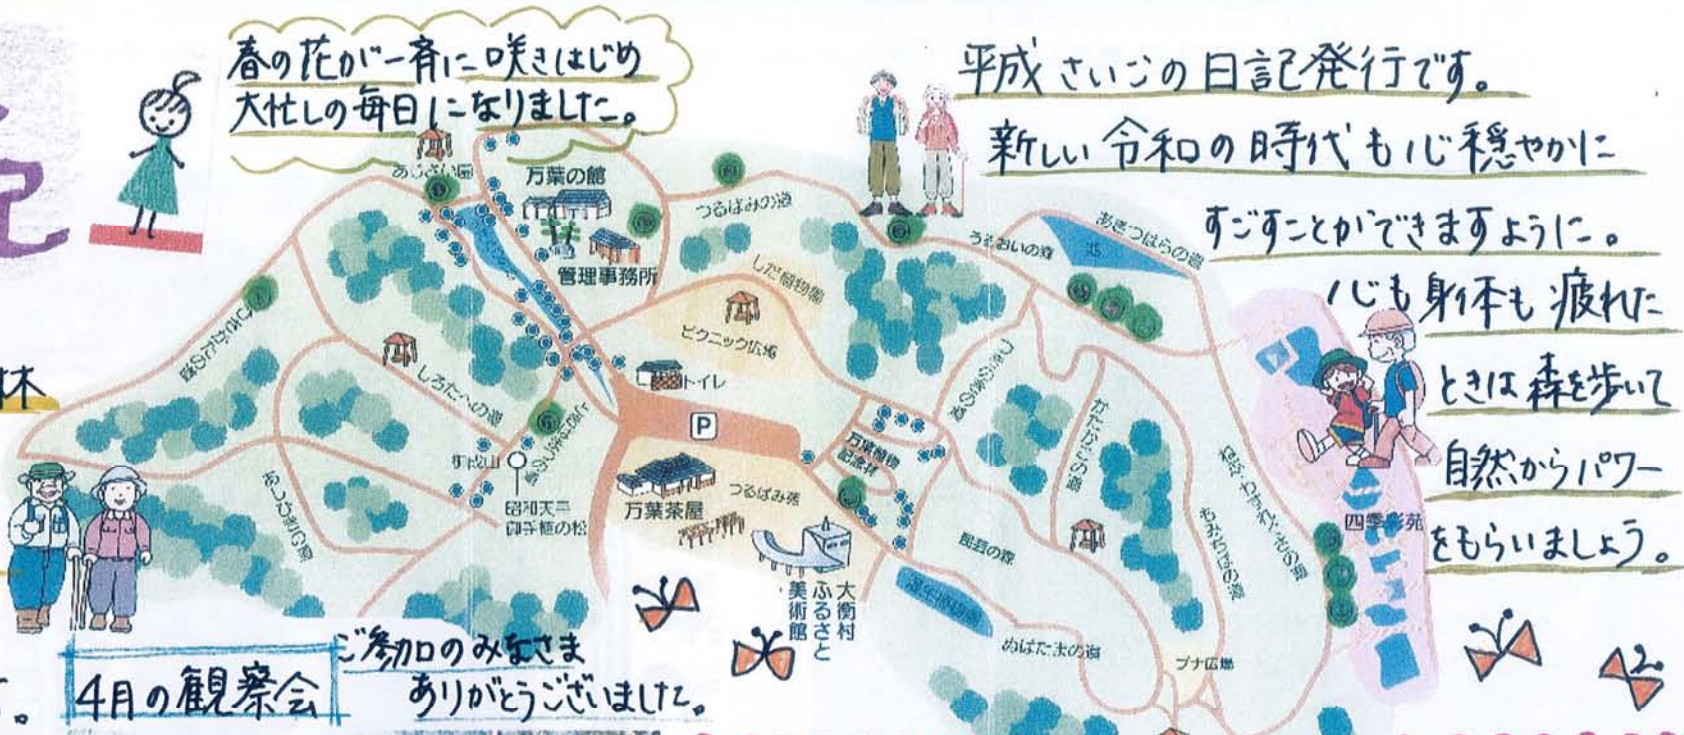 春の花が一斉に咲きはじめ
大忙しの毎日になりました。
平成さいごの日記発行です。
新しい令和の時代も心穏やかに
すごすことができますように。
心も身体も疲れた
ときは森を歩いて
自然からパワー
をもらいましょう。
林
あじさい園
万葉の館
管理事務所
つるばみの道
うるおいの森
あきつはらの道
しだ植物園
ピクニック広場
トイレ
P
しろたへの道
あしひきの道
御成山
昭和天皇
御手植の松
万葉茶屋
つるばみ苑
万葉植物
記念林
大衡村
ふるさと
美術館
かたかごの道
もみちばの道
四季彩苑
昆虫の森
ぬばたまの道
ブナ広場
4月の観察会
ご参加のみなさま
ありがとうございました。
す。